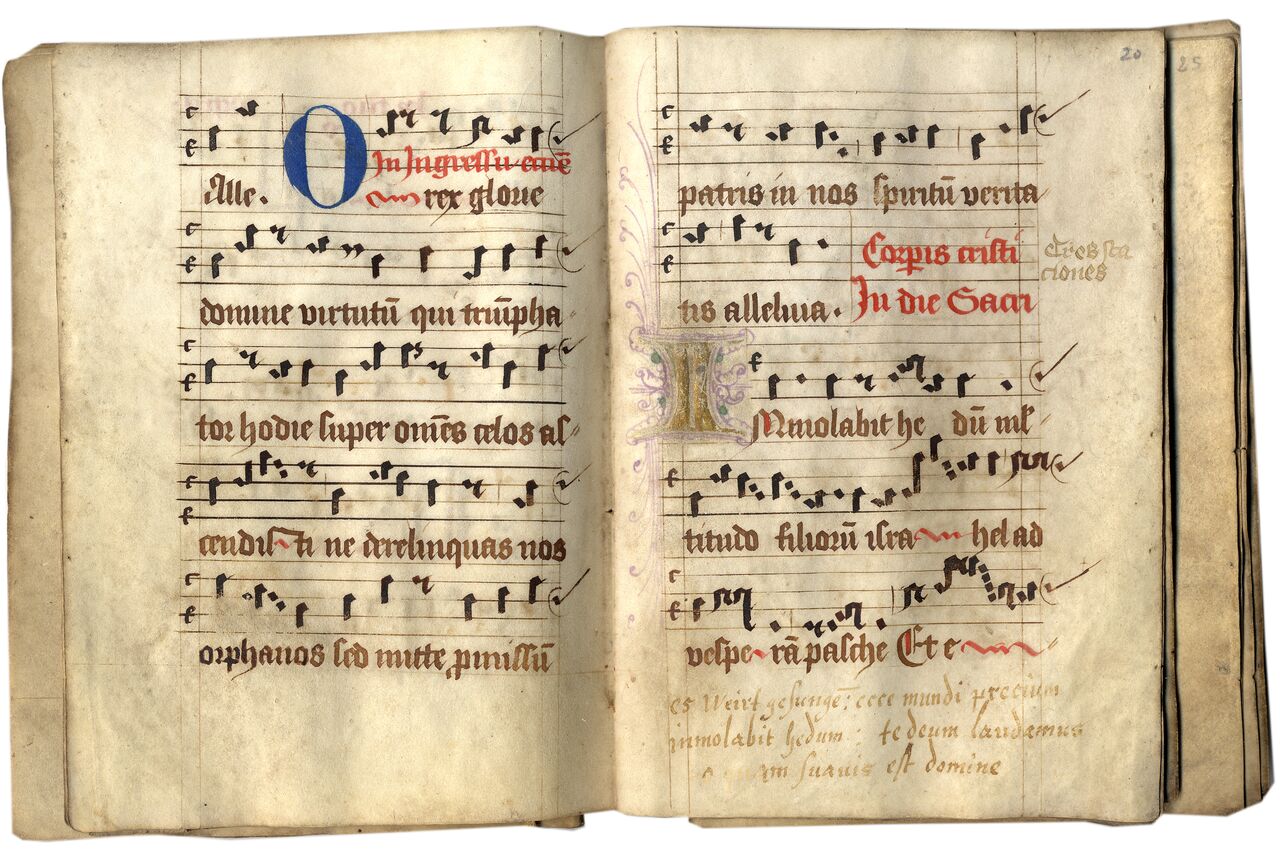 O In Ingressu
Alle. rex glorie
domine virtutū qui triūpha
tor hodie super omēs celos as
cendisti ne derelinquas nos
orphanos sed mitte ꝓmissū
20
25
patris in nos spiritū verita
Corpis cristi
tis alleluia. In die Sacri
Tres sta
ciones
IMmolabit he dū ml
titudo filiorū isra hel ad
vespe rā pasche Et e
es Weirt gesungē: ecce mundi precium
inmolabit hedum: te deum laudamus
o quam suavis est domine